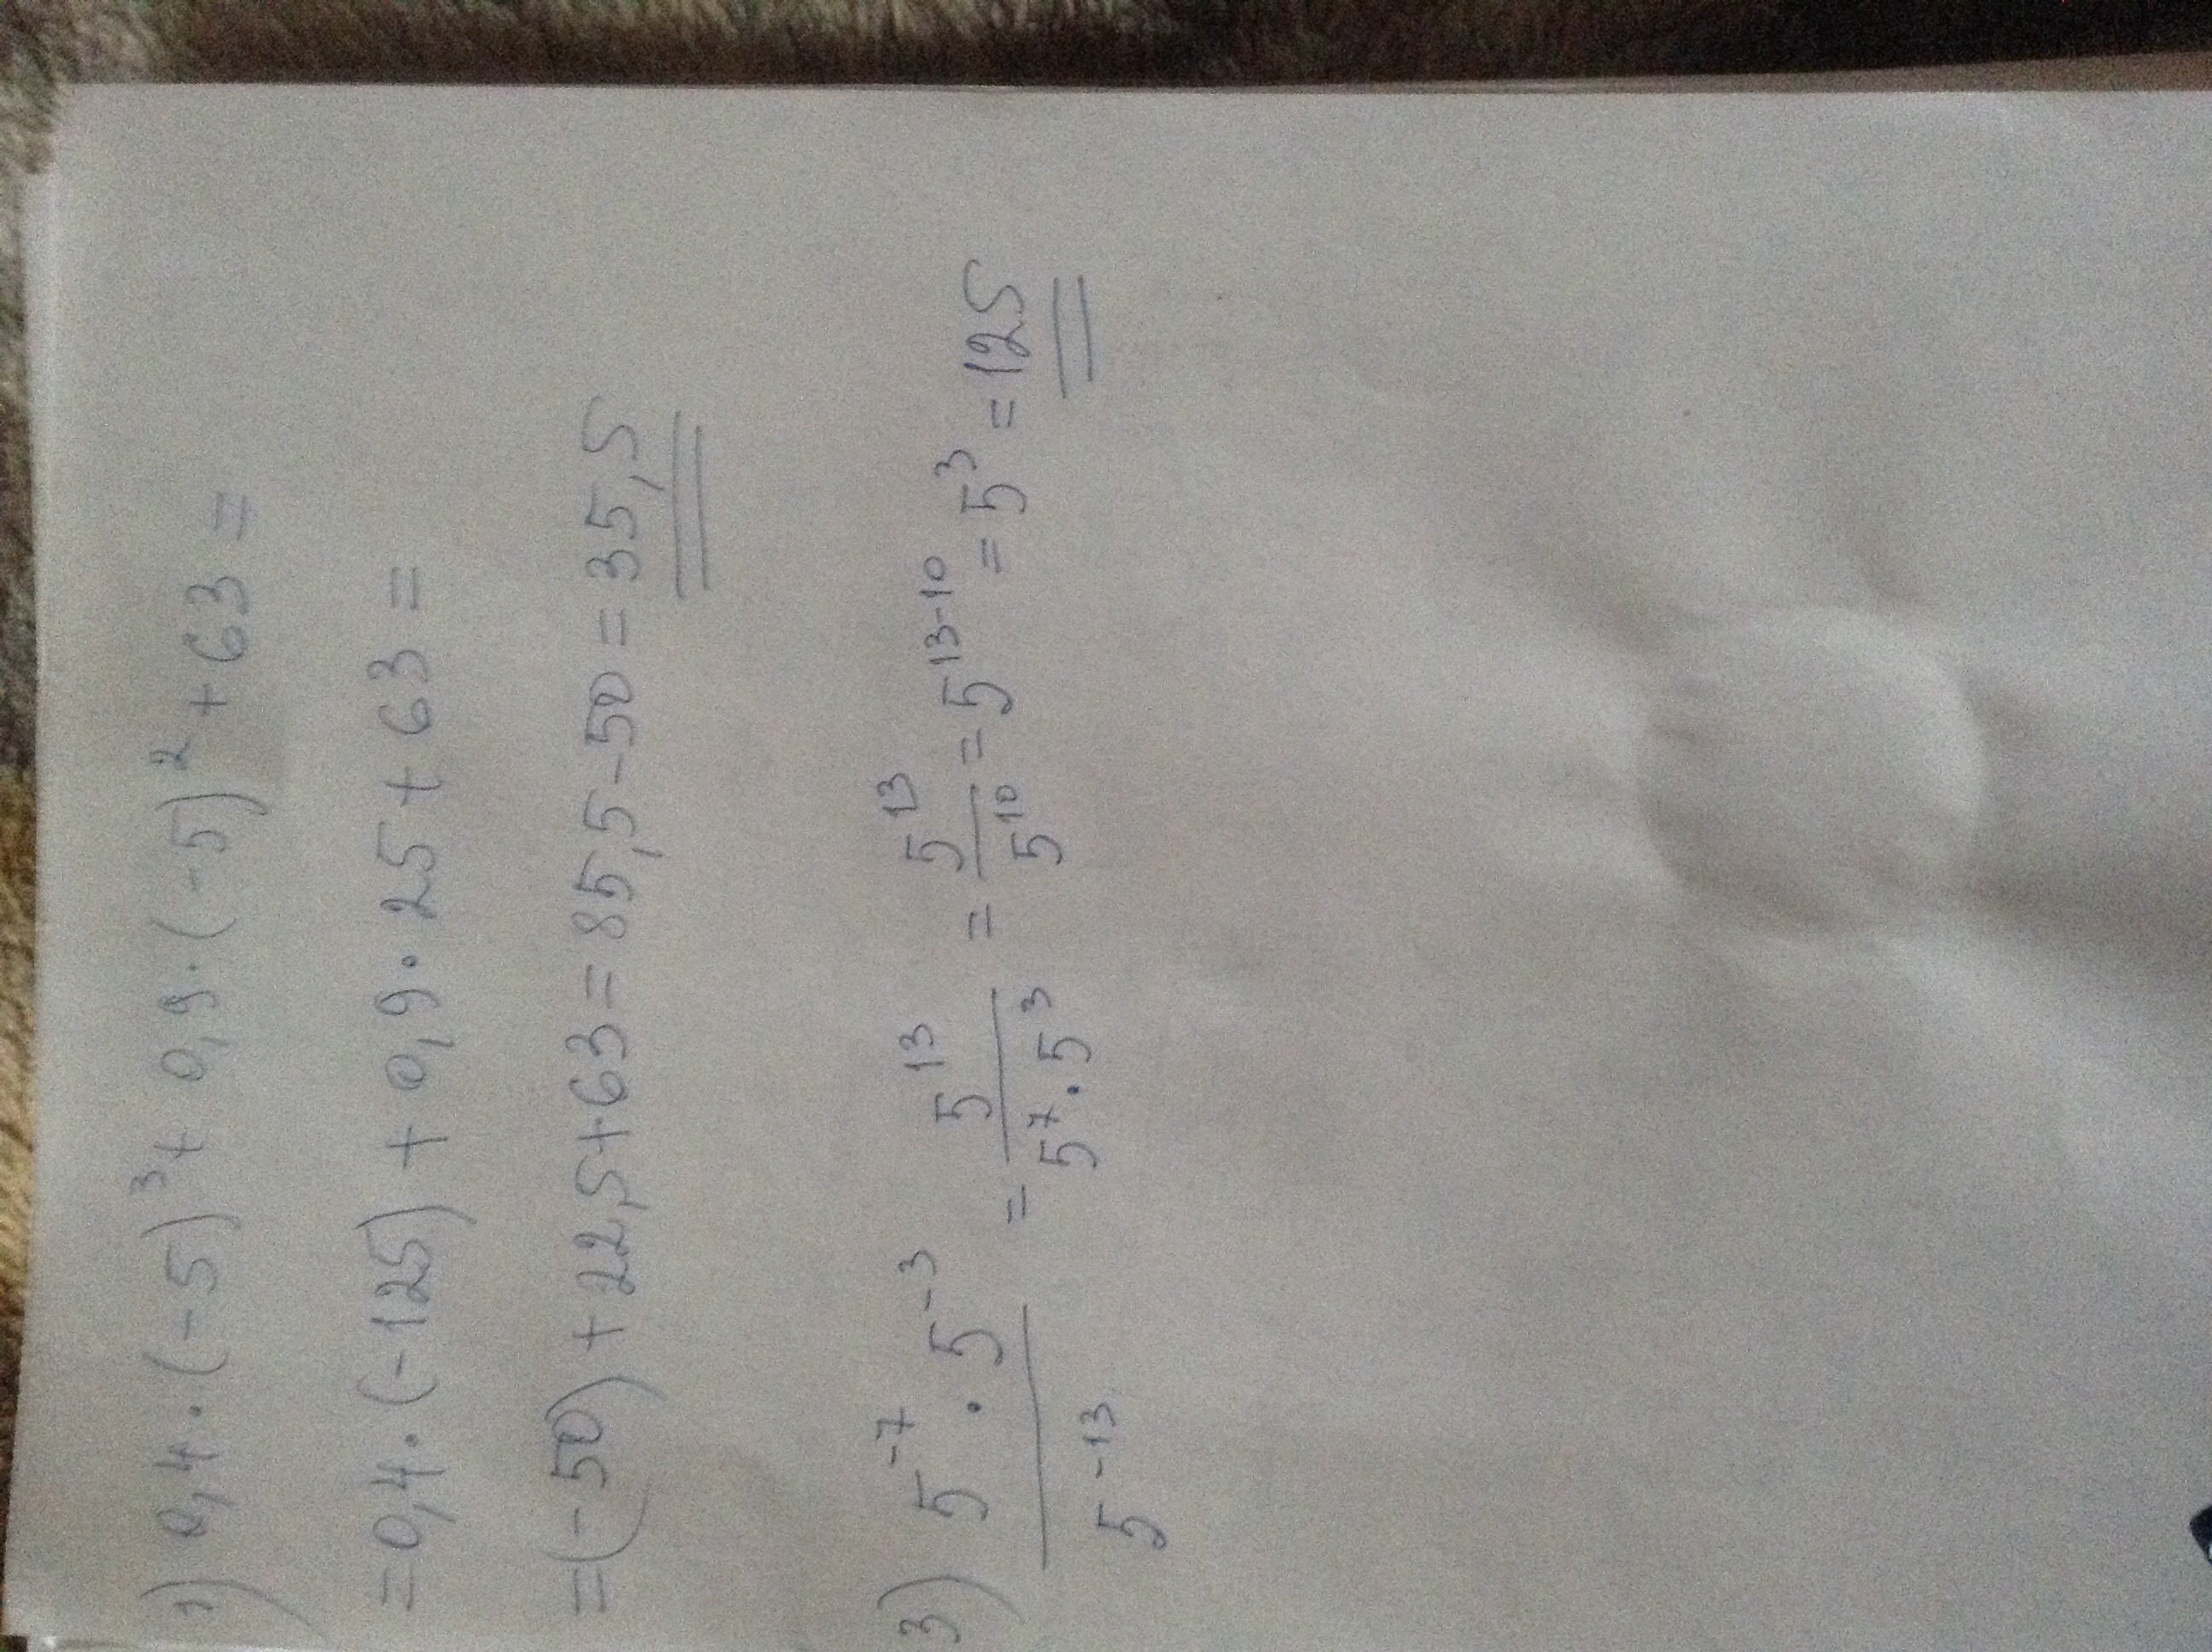 1) 0,4·(-5)³+0,9·(-5)²+63=
=0,4·(-125)+0,9·25+63=
=(-50)+22,5+63=85,5-50=35,5
3) 5⁻⁷·5⁻³/5⁻¹³ = 5¹³/5⁷·5³ = 5¹³/5¹⁰ = 5¹³⁻¹⁰ = 5³ = 125